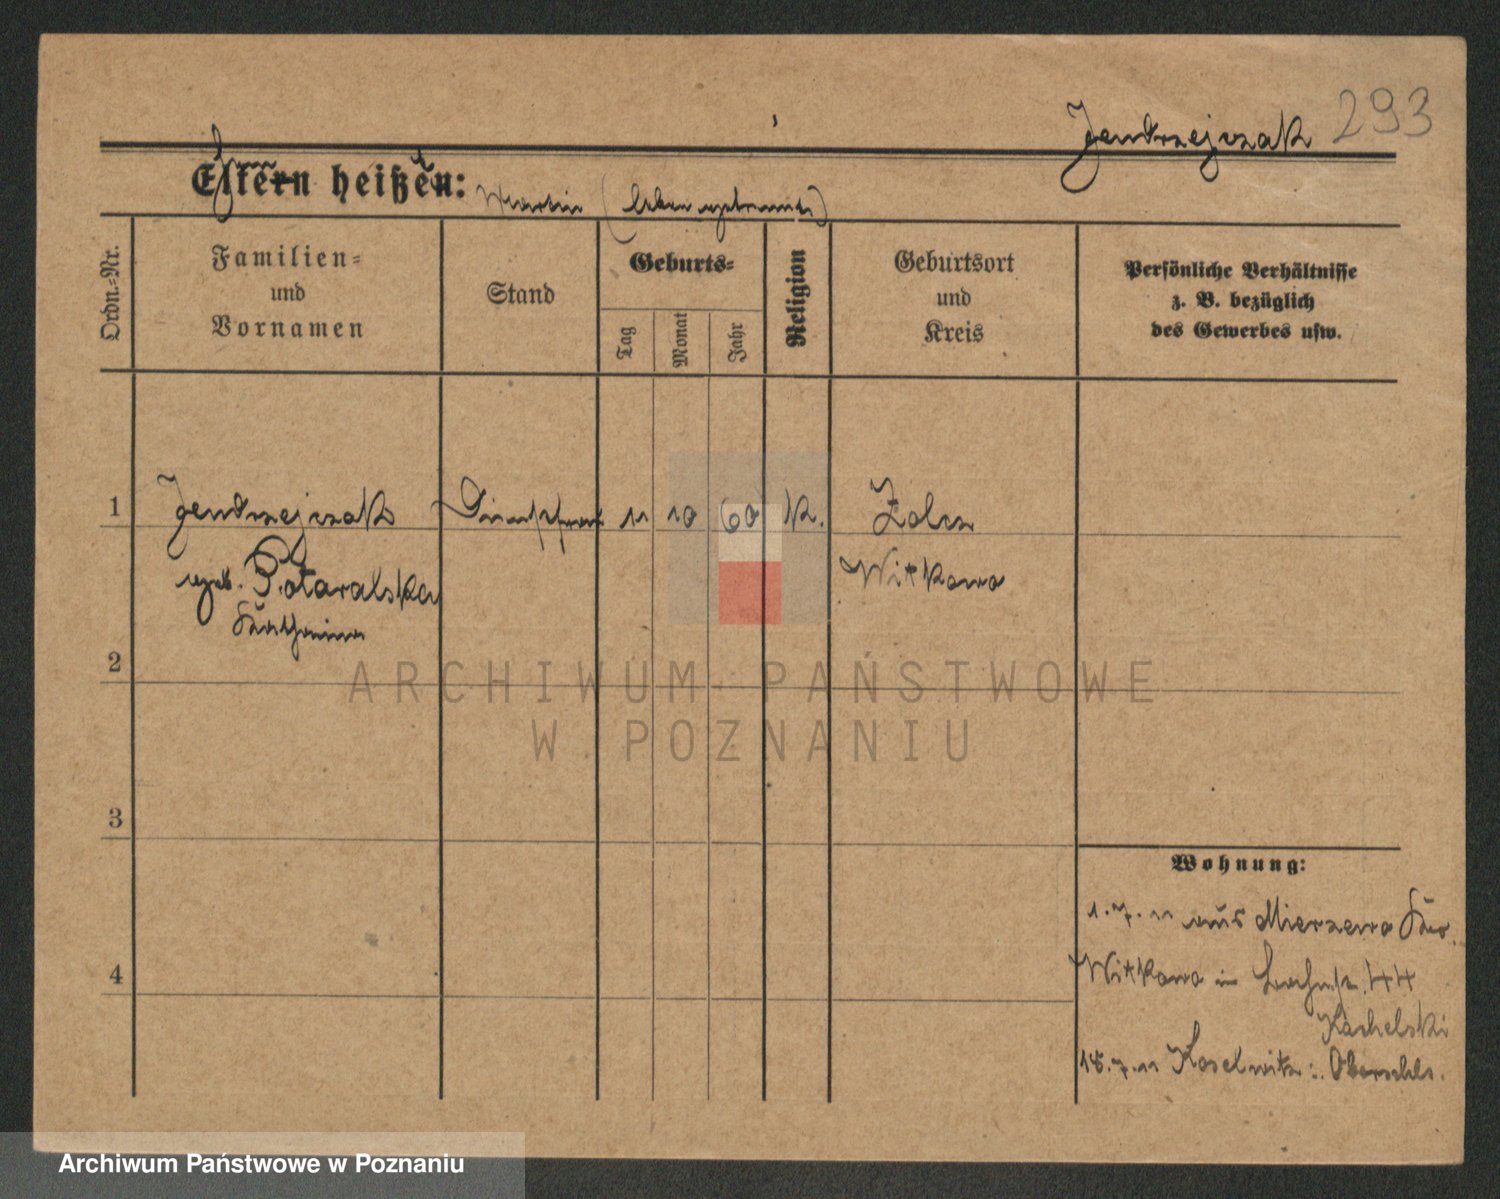 293
Jendrzejczak
Eltern heißen: Martin (
Ordn.=Nr.
Familien=
und
Vornamen
Stand
Geburts=
Tag
Monat
Jahr
Religion
Geburtsort
und
Kreis
Persönliche Verhältnisse
z. B. bezüglich
des Gewerbes usw.
1 Jendrzejczak 11 10 60 K. Zolcz
geb. Potaralska Witkowo
Kathrina
2
3
4
Wohnung:
1.7.11 aus Mierzewo Krs.
Witkowo in 44
Kachelski
18.7.11 Koselwitz: Oberschls.
ARCHIWUM PAŃSTWOWE
W POZNANIU
Archiwum Państwowe w Poznaniu